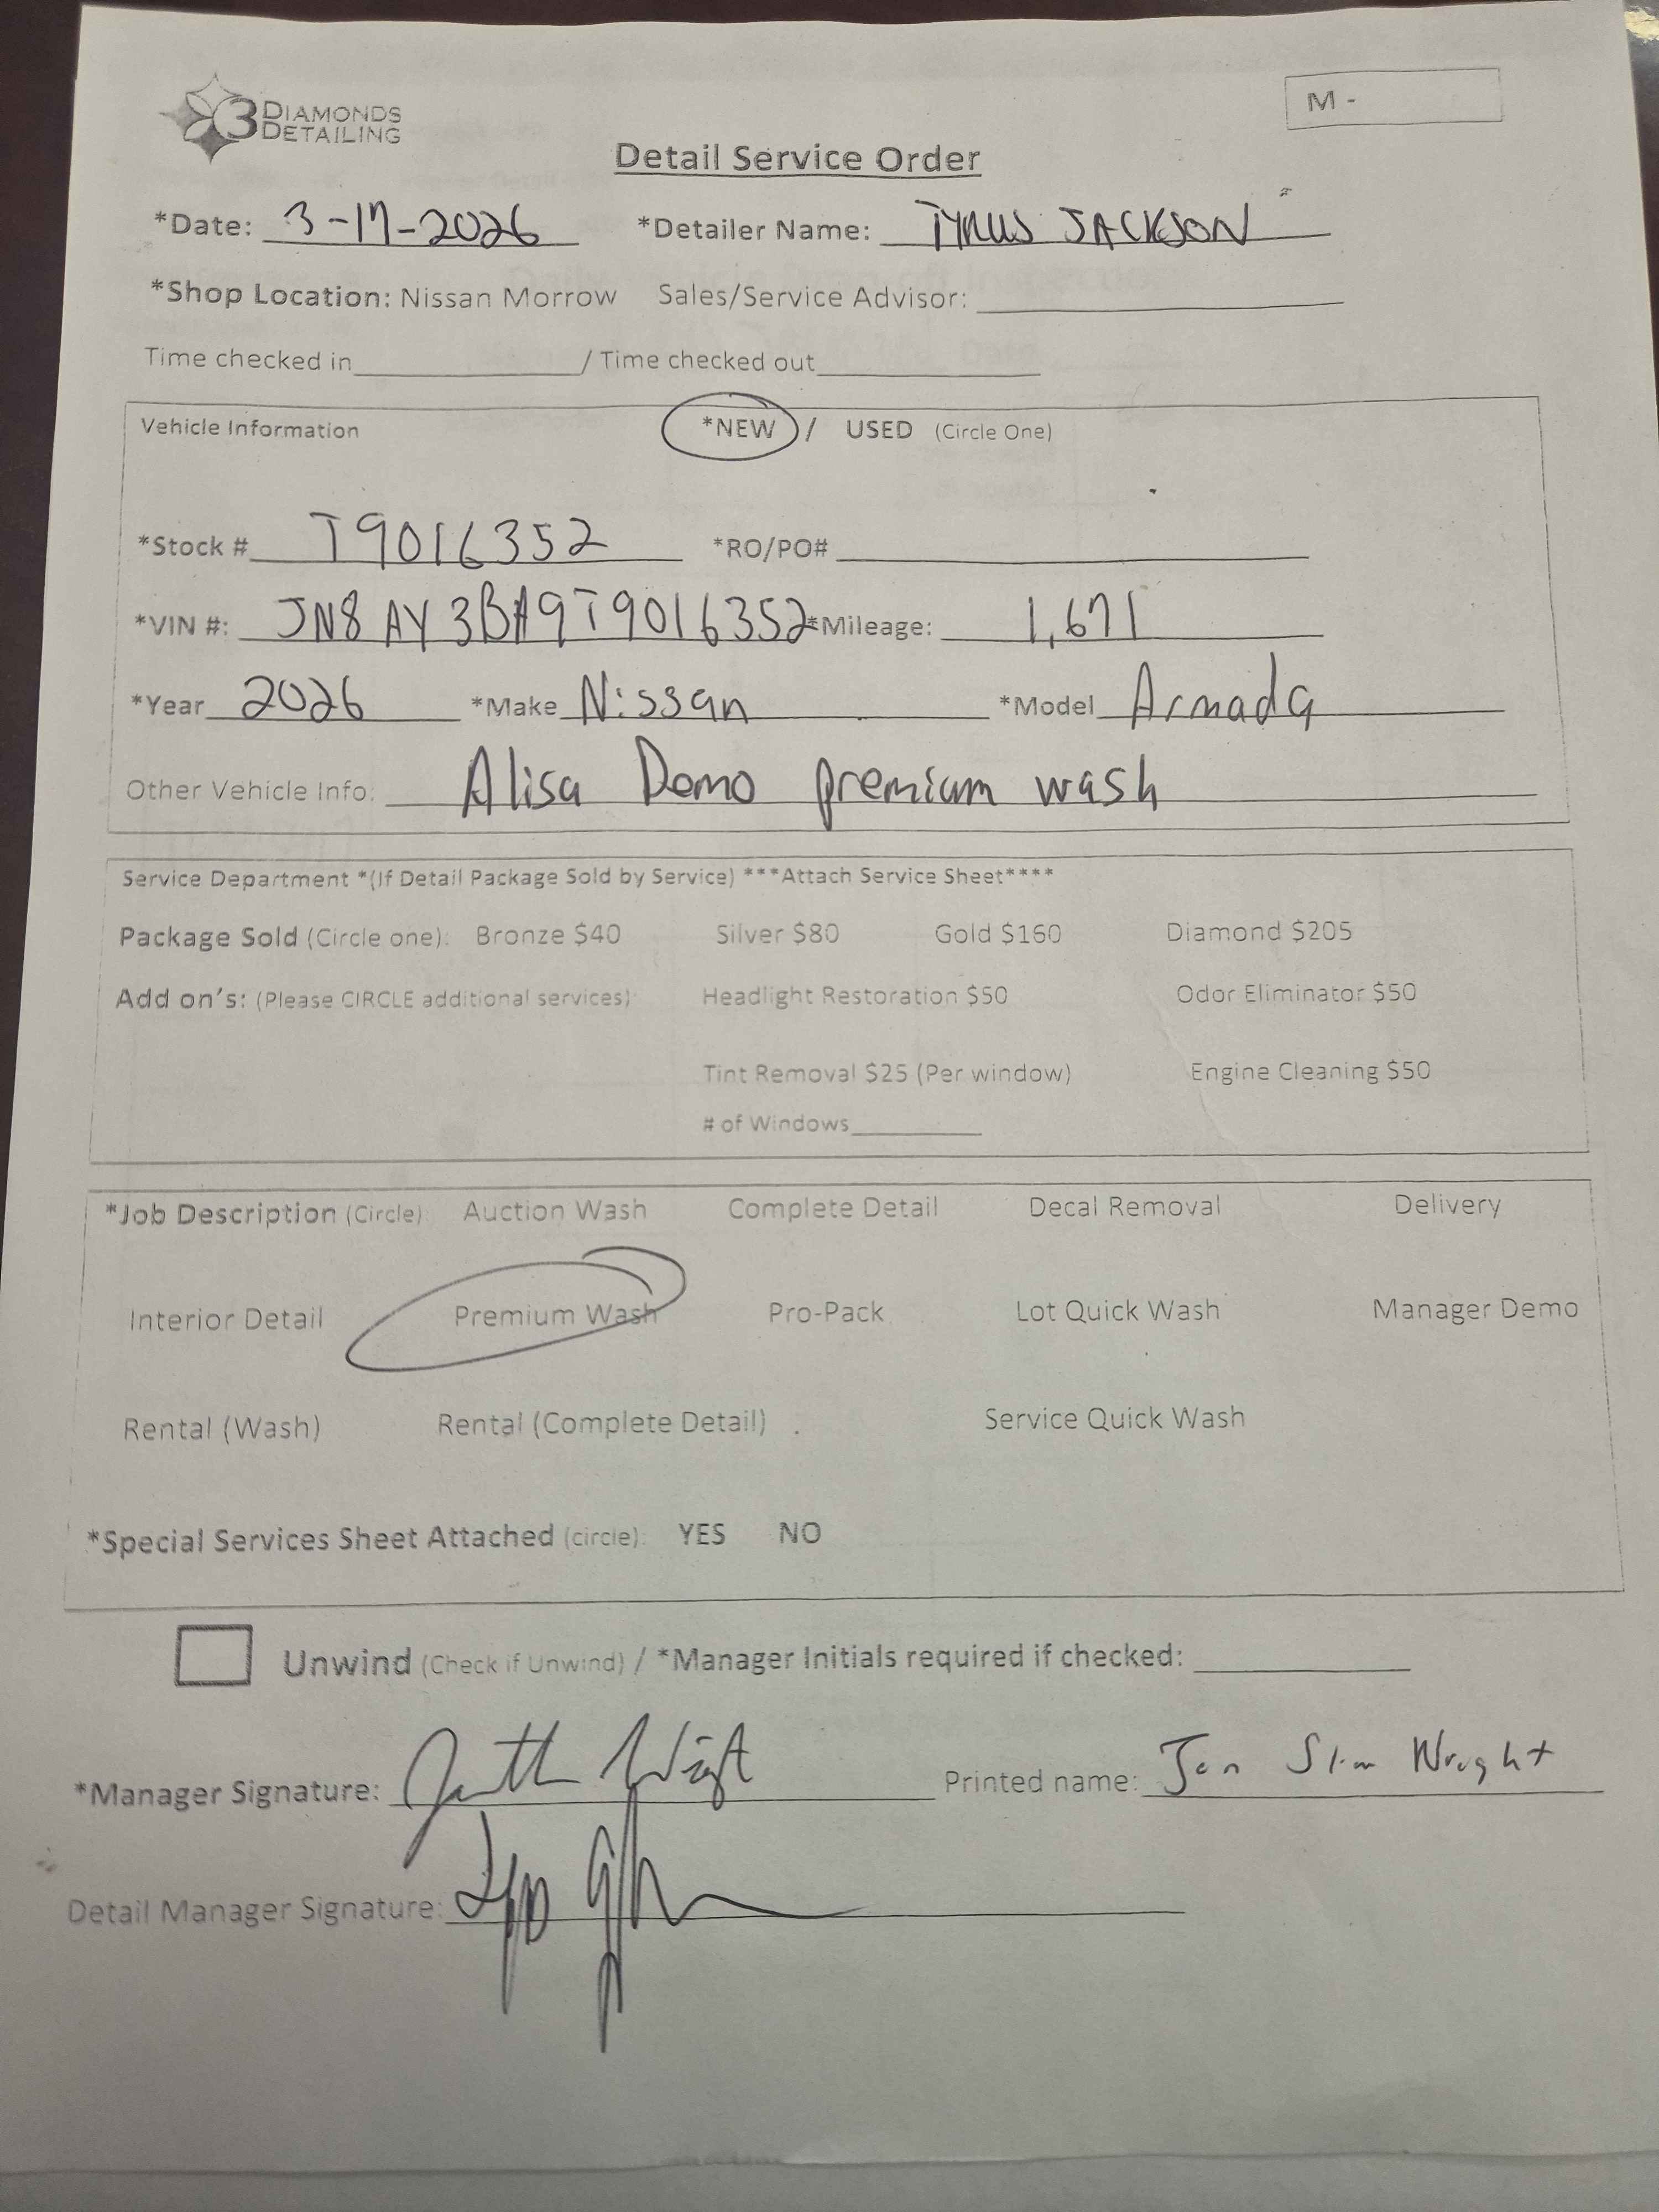 3 DIAMONDS
DETAILING
M -
Detail Service Order
*Date: 3-17-2026 *Detailer Name: TYRUS JACKSON
*Shop Location: Nissan Morrow Sales/Service Advisor:
Time checked in / Time checked out
Vehicle Information *NEW / USED (Circle One)
*Stock # T9016352 *RO/PO#
*VIN #: JN8AY3BA9T9016352 *Mileage: 1,671
*Year 2026 *Make Nissan *Model Armada
Other Vehicle Info: Alisa Demo premium wash
Service Department *(If Detail Package Sold by Service) ***Attach Service Sheet****
Package Sold (Circle one): Bronze $40 Silver $80 Gold $160 Diamond $205
Add on's: (Please CIRCLE additional services) Headlight Restoration $50 Odor Eliminator $50
Tint Removal $25 (Per window) Engine Cleaning $50
# of Windows
*Job Description (Circle): Auction Wash Complete Detail Decal Removal Delivery
Interior Detail Premium Wash Pro-Pack Lot Quick Wash Manager Demo
Rental (Wash) Rental (Complete Detail) Service Quick Wash
*Special Services Sheet Attached (circle): YES NO
Unwind (Check if Unwind) / *Manager Initials required if checked:
*Manager Signature: Printed name: Jon Slim Wright
Detail Manager Signature: